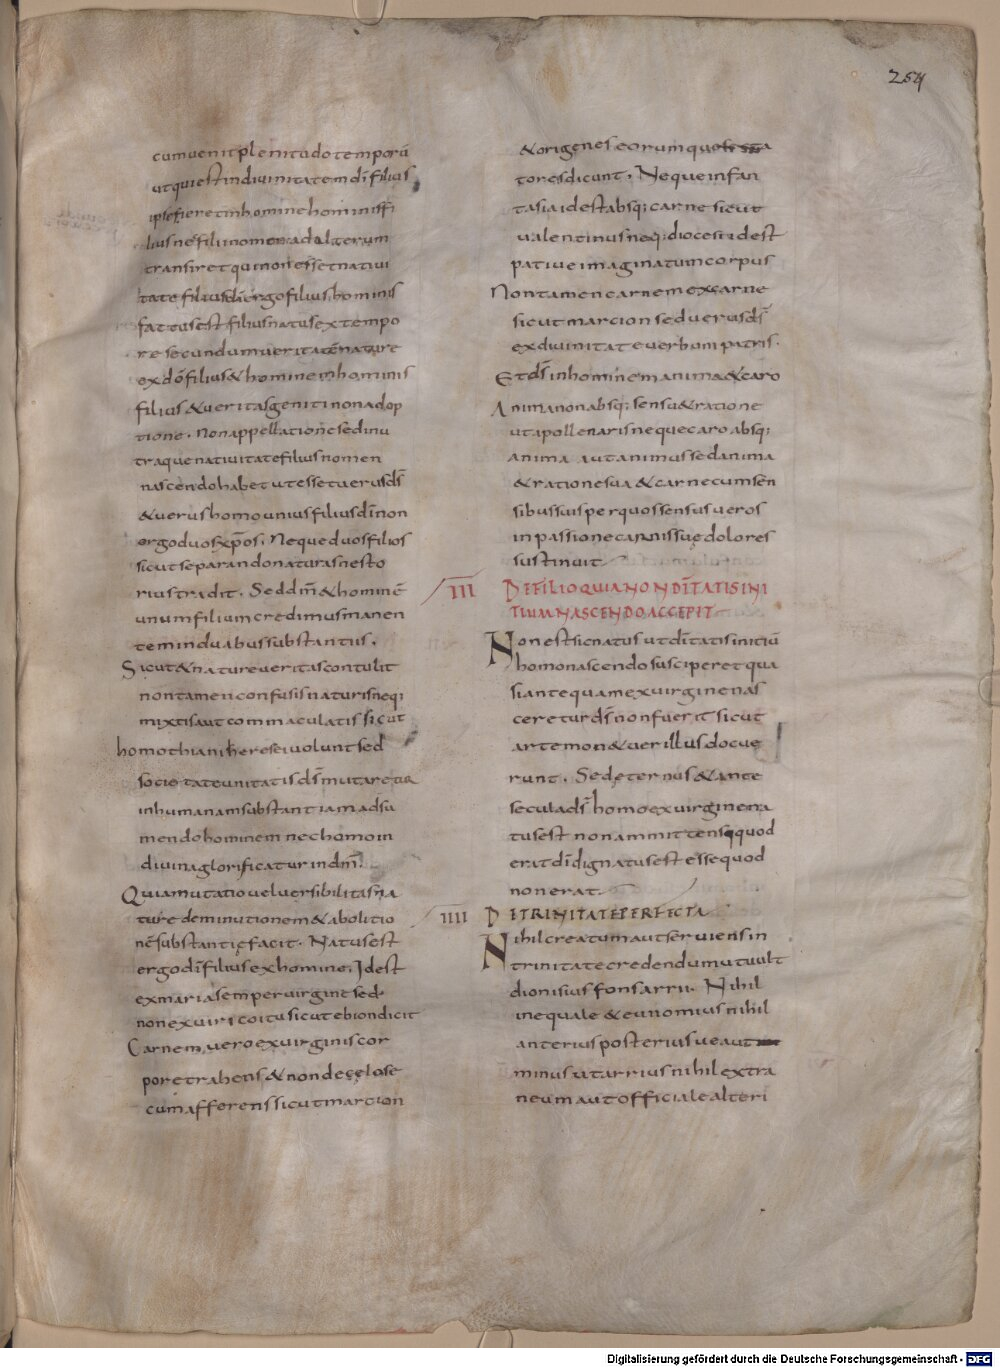 254
cum uenit plenitudo temporū
ut qui est in diuinitatem dī filius
ipse fieret in homine hominis fi
lius ne filii nomen ad alterum
transiret qui non esset natiui
tate filius dī ergo filius hominis
fattus est filius natus ex tempo
re secundum ueritatē nature
ex dō filius & hominem hominis
filius & ueritas geniti non adop
tione. non appellationē sed in u
traque natiuitate filius nomen
nascendo habet ut esset uerus dš
& uerus homo unius filius dī non
ergo duos xp̄os. Neque duos filios
sicut separando naturas nesto
rius tradit. Sed dm̄ & hominē
unum filium credimus manen
tem in duabus substantiis.
Sicut & nature ueritas contulit
non tamen confusis naturis neq;
mixtis aut commaculatis sicut
homothiani hereseiuolunt sed
societate unitatis dš mutaretur
in humanam substantiam adsu
mendo hominem nec homo in
diuina glorificatur in dm̄.
Quia mutatio uel uersibilitas na
ture deminutionem & abolitio
nē substantię facit. Natus est
ergo dī filius ex homine. Id est
ex maria semper uirgine sed
non ex uiri coitu sicut ebion dicit
Carnem uero ex uirginis cor
pore trahens & non de cęlo se
cum afferens sicut martion
& origenes eorum quo ta
tores dicunt. Neque in fan
tasia id est absq; carne sicut
ualentinus neq; diocesi id est
patiue imaginatum corpus
Non tamen carnem ex carne
sicut marcion sed uerus dš
ex diuinitate uerbum patris.
Et dš in hominem anima & caro
Anima non absq; sensu & ratione
ut apollenaris neque caro absq;
anima aut animus sed anima
& ratione sua & carne cum sen
sibus suis per quos sensus ueros
in passione carnis suę dolores
sustinuit.
III DE FILIO QUIA NON DĒITATIS INI
TIUM NASCENDO ACCEPIT
Non est sic natus ut dītatis initiū
homo nascendo susciperet qua
si antequam ex uirgine nas
ceretur dš non fuerit sicut
artemon & uerillus docue
runt. Sed ęternus & ante
secula dš homo ex uirgine na
tus est non ammittens quod
erat dī dignatus est esse quod
non erat.
IIII DE TRINITATE PERFECTA
Nihil creatum aut seruiens in
trinitate credendum ut uult
dionisius fons arrii. Nihil
inequale & eunomius nihil
anterius posterius ue aut
minus ut arrius nihil extra
neum aut officiale alteri
Digitalisierung gefördert durch die Deutsche Forschungsgemeinschaft - DFG